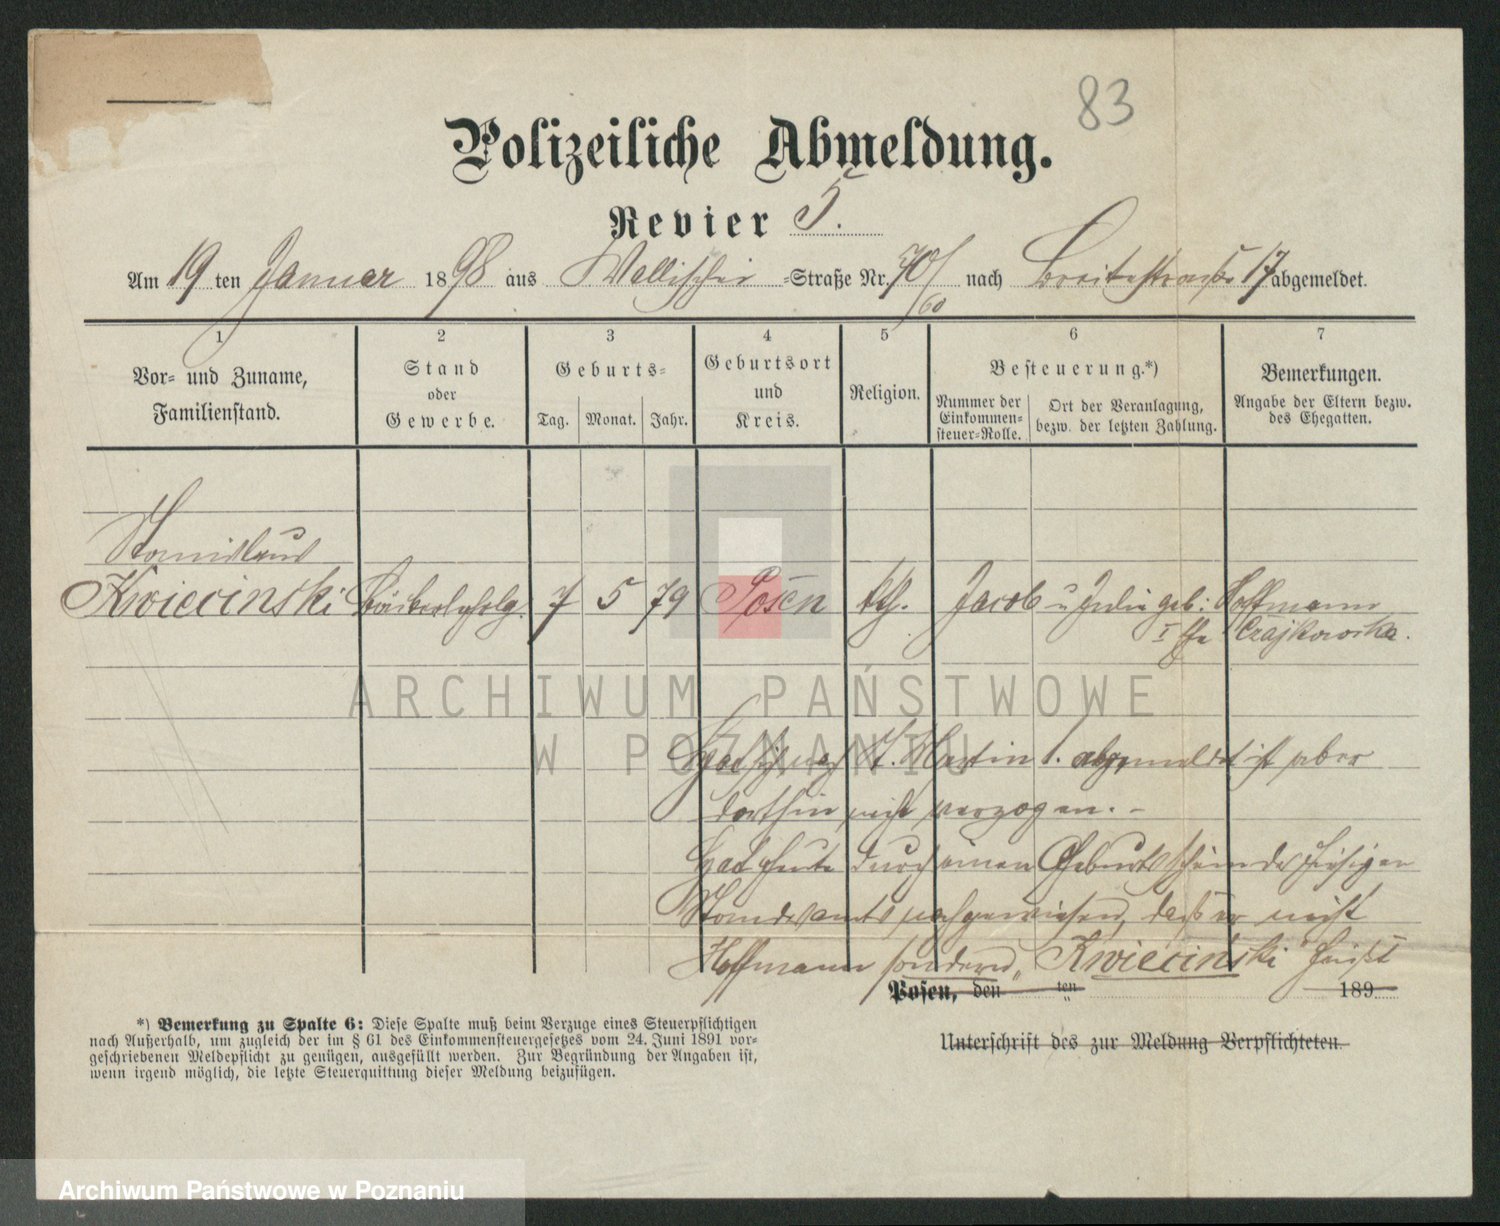 83
Polizeiliche Abmeldung.
Revier 5.
Am 19 ten Januar 1898 aus Wallischei -Straße Nr. 70/60 nach Breitestraße 17 abgemeldet.
1 2 3 4 5 6 7
Vor- und Zuname, Familienstand.
Stand oder Gewerbe.
Geburts-
Tag. Monat. Jahr.
Geburtsort und Kreis.
Religion.
Besteuerung.*)
Nummer der Einkommen-steuer-Rolle.
Ort der Veranlagung, bezw. der letzten Zahlung.
Bemerkungen.
Angabe der Eltern bezw. des Ehegatten.
Stanislaus
Kwiecinski 7 5 79 Posen kth. Jacob u Julie geb: Hoffmann
I Czajkowska.
Hat sich nach St. Martin 1. abgemeldet ist aber
dorthin nicht verzogen. -
Hat heute durch einen Geburtsschein des hiesigen
Standesamts nachgewiesen, daß er nicht
Hoffmann sondern „Kwiecinski" heißt
Posen, den ten 189
*) Bemerkung zu Spalte 6: Diese Spalte muß beim Verzuge eines Steuerpflichtigen
nach Außerhalb, um zugleich der im § 61 des Einkommensteuergesetzes vom 24. Juni 1891 vor-
geschriebenen Meldepflicht zu genügen, ausgefüllt werden. Zur Begründung der Angaben ist,
wenn irgend möglich, die letzte Steuerquittung dieser Meldung beizufügen.
Unterschrift des zur Meldung Verpflichteten.
ARCHIWUM PAŃSTWOWE
W POZNANIU
Archiwum Państwowe w Poznaniu